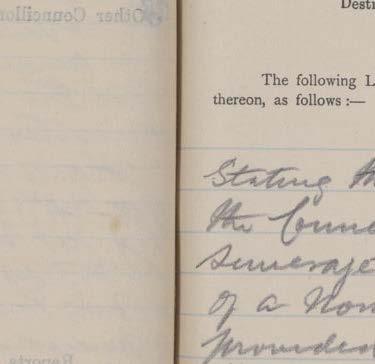 Other Councillor
Desti
The following L
thereon, as follows :—
Stating th
the Counc
Sewerage
of a Non
providen
Reports